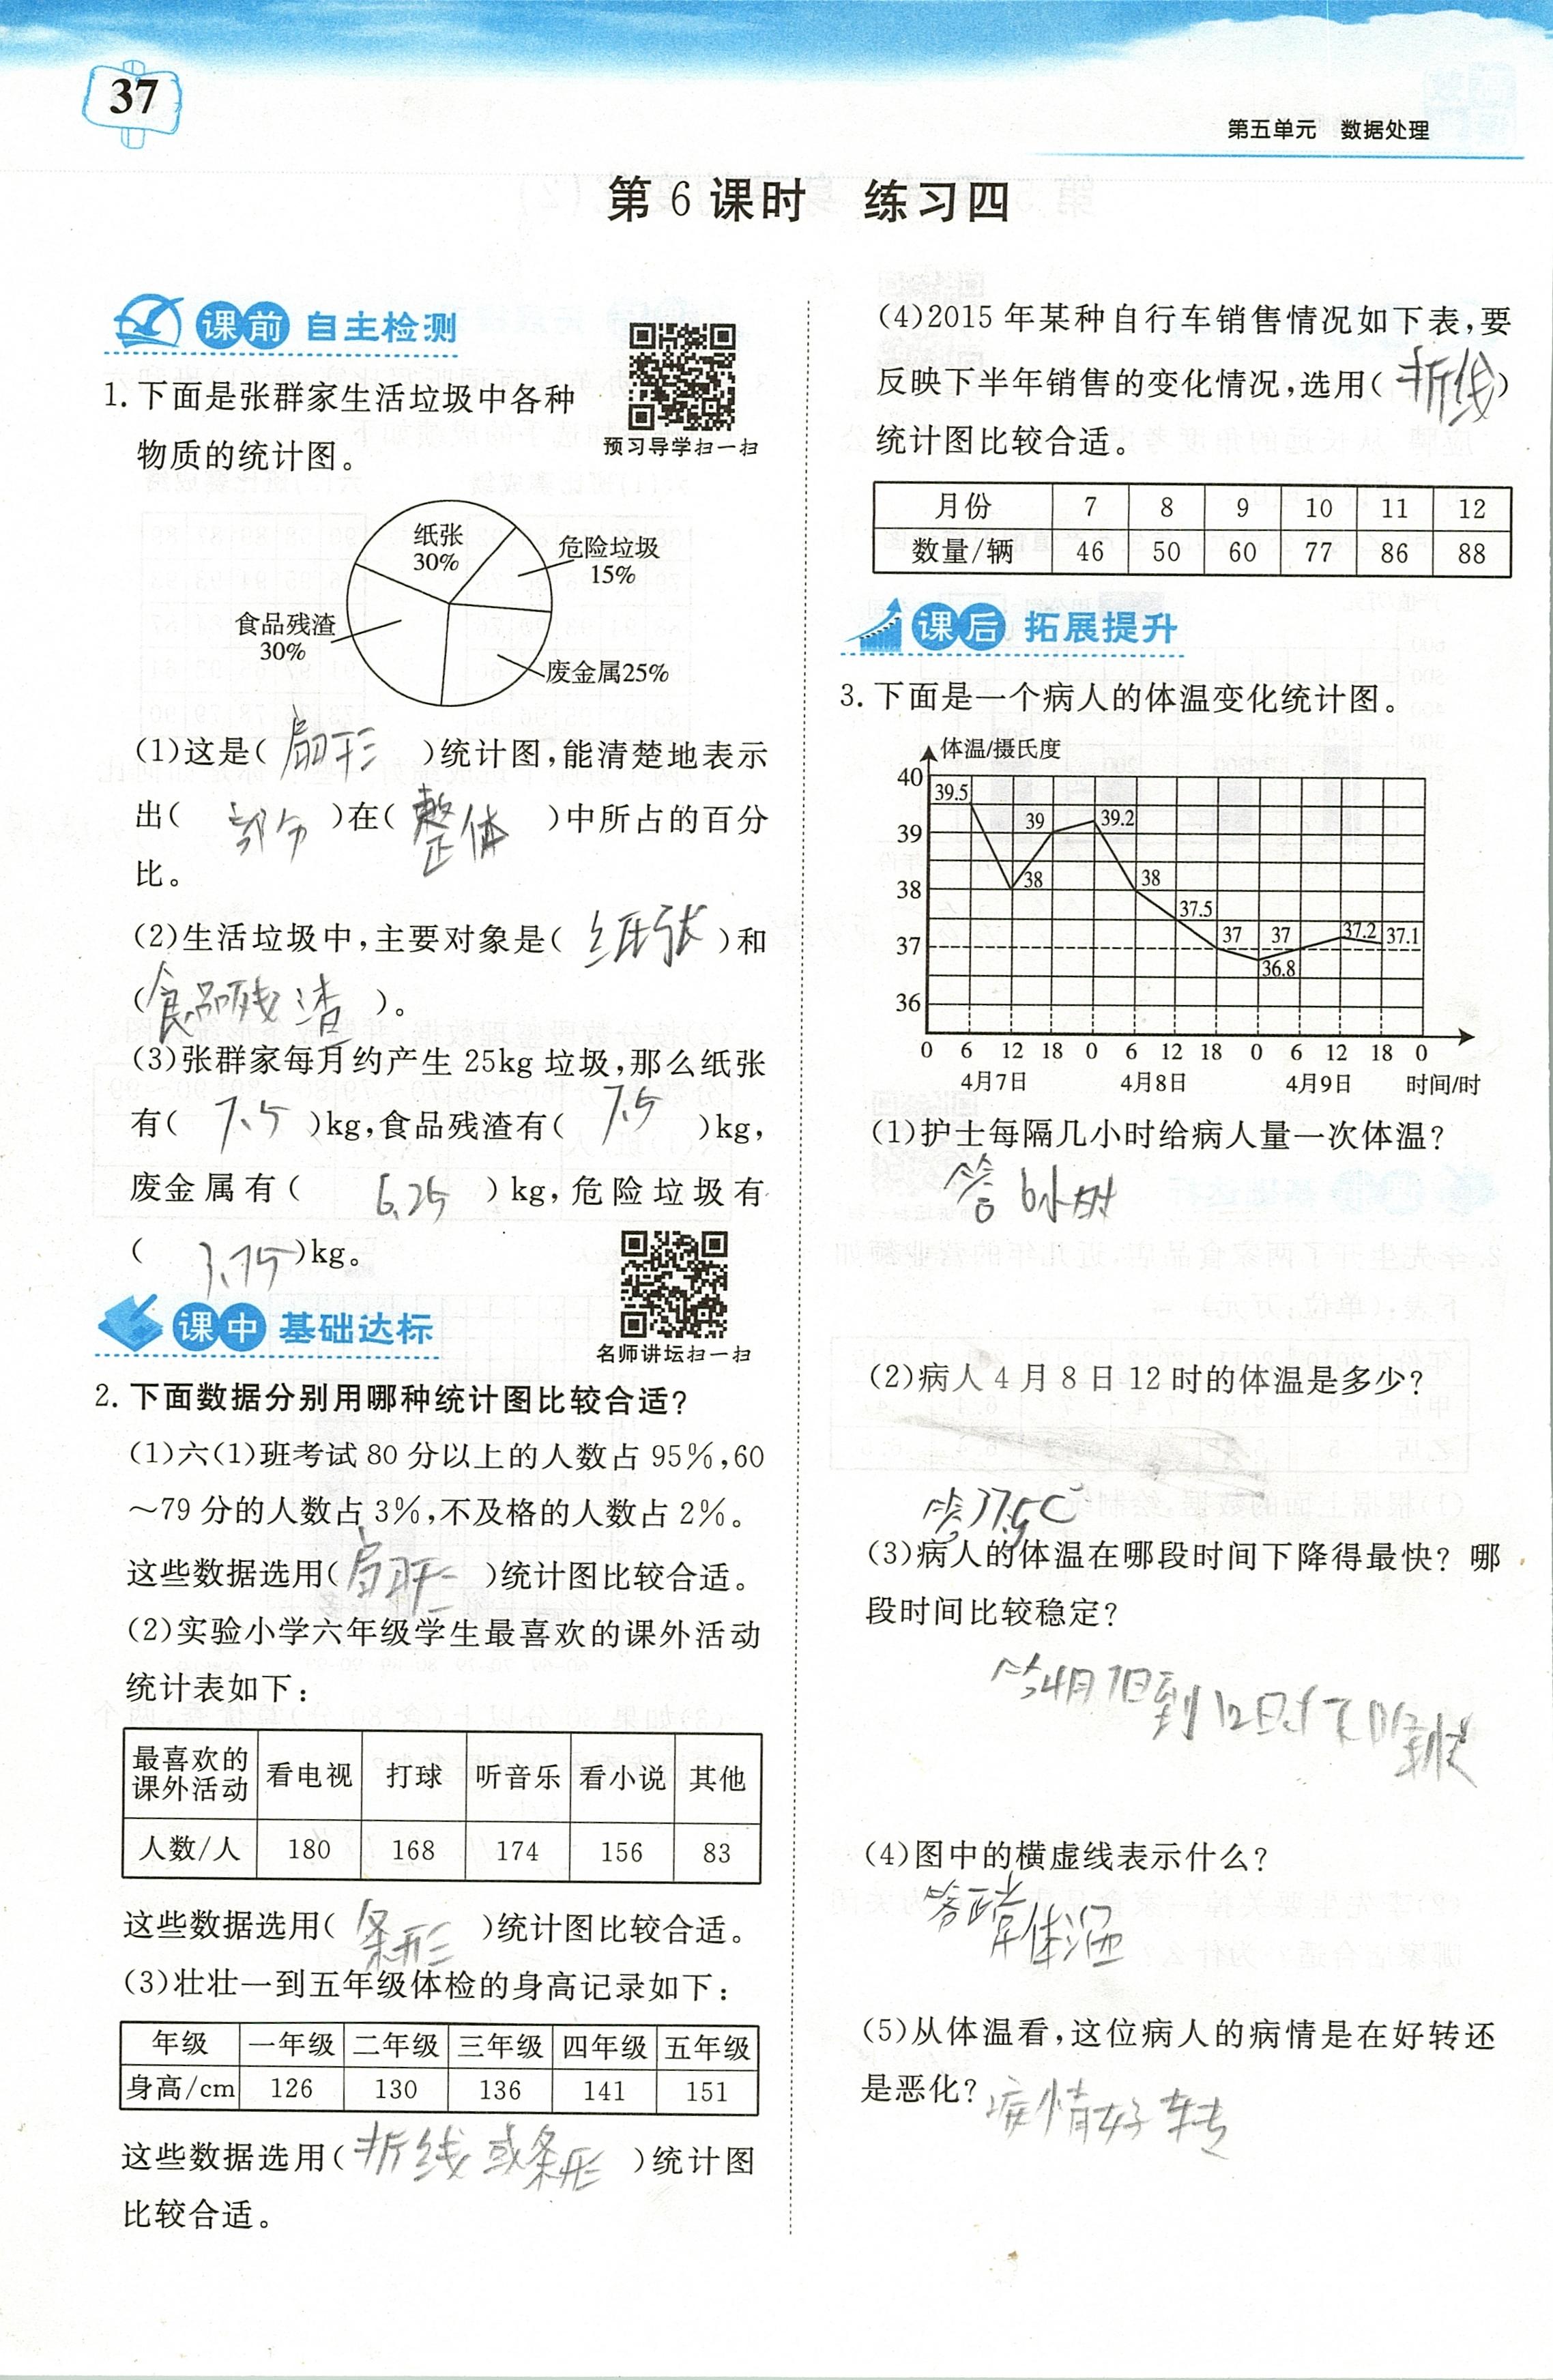 37
第五单元 数据处理
第 6 课时 练习四
课前 自主检测
预习导学扫一扫
1. 下面是张群家生活垃圾中各种
物质的统计图。
纸张
30%
危险垃圾
15%
食品残渣
30%
废金属25%
(1)这是( 扇形 )统计图,能清楚地表示
出( 部分 )在( 整体 )中所占的百分
比。
(2)生活垃圾中,主要对象是( 纸张 )和
(食品残渣 )。
(3)张群家每月约产生 25kg 垃圾,那么纸张
有( 7.5 )kg,食品残渣有( 7.5 )kg,
废金属有( 6.25 )kg,危险垃圾有
( 3.75 )kg。
课中 基础达标
名师讲坛扫一扫
2. 下面数据分别用哪种统计图比较合适?
(1)六(1)班考试 80 分以上的人数占 95%,60
~79 分的人数占 3%,不及格的人数占 2%。
这些数据选用( 扇形 )统计图比较合适。
(2)实验小学六年级学生最喜欢的课外活动
统计表如下:
最喜欢的课外活动 看电视 打球 听音乐 看小说 其他
人数/人 180 168 174 156 83
这些数据选用( 条形 )统计图比较合适。
(3)壮壮一到五年级体检的身高记录如下:
年级 一年级 二年级 三年级 四年级 五年级
身高/cm 126 130 136 141 151
这些数据选用( 折线或条形 )统计图
比较合适。
(4)2015 年某种自行车销售情况如下表,要
反映下半年销售的变化情况,选用( 折线 )
统计图比较合适。
月份 7 8 9 10 11 12
数量/辆 46 50 60 77 86 88
课后 拓展提升
3. 下面是一个病人的体温变化统计图。
体温/摄氏度
40
39.5
39
39.2
39
38
38
38
37.5
37
37
37.2
37.1
37
36.8
36
0 6 12 18 0 6 12 18 0 6 12 18 0
4月7日 4月8日 4月9日 时间/时
(1)护士每隔几小时给病人量一次体温?
答 6小时
(2)病人 4 月 8 日 12 时的体温是多少?
答37.5C°
(3)病人的体温在哪段时间下降得最快? 哪
段时间比较稳定?
答4月7日到12时下降最快
(4)图中的横虚线表示什么?
答正常体温
(5)从体温看,这位病人的病情是在好转还
是恶化? 病情好转